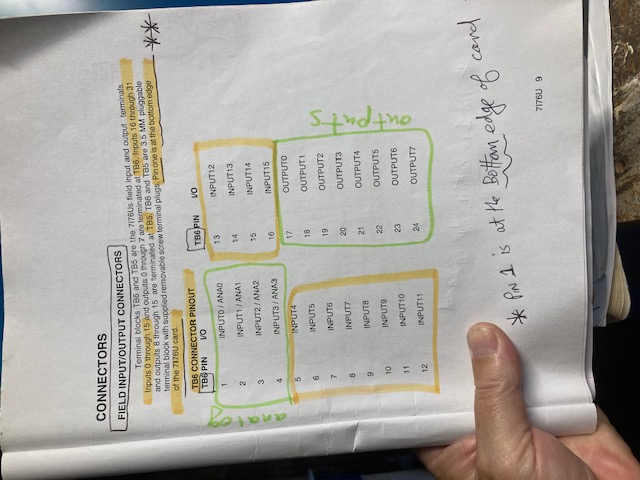 CONNECTORS
FIELD INPUT/OUTPUT CONNECTORS
Terminal blocks TB6 and TB5 are the 7I76Us field input and output terminals.
Inputs 0 through 15 and outputs 0 through 7 are terminated at TB6. Inputs 16 through 31
and outputs 8 through 15 are terminated at TB5. TB6 and TB5 are 3.5 MM pluggable
terminal block with supplied removable screw terminal plugs. Pin one is at the bottom edge
of the 7I76U card.
**
TB6 CONNECTOR PINOUT
TB6 PIN I/O TB6 PIN I/O
1 INPUT0 / ANA0 13 INPUT12
2 INPUT1 / ANA1 14 INPUT13
3 INPUT2 / ANA2 15 INPUT14
4 INPUT3 / ANA3 16 INPUT15
5 INPUT4 17 OUTPUT0
6 INPUT5 18 OUTPUT1
7 INPUT6 19 OUTPUT2
8 INPUT7 20 OUTPUT3
9 INPUT8 21 OUTPUT4
10 INPUT9 22 OUTPUT5
11 INPUT10 23 OUTPUT6
12 INPUT11 24 OUTPUT7
analog
outputs
* PIN 1 is at the Bottom edge of card
7I76U 9